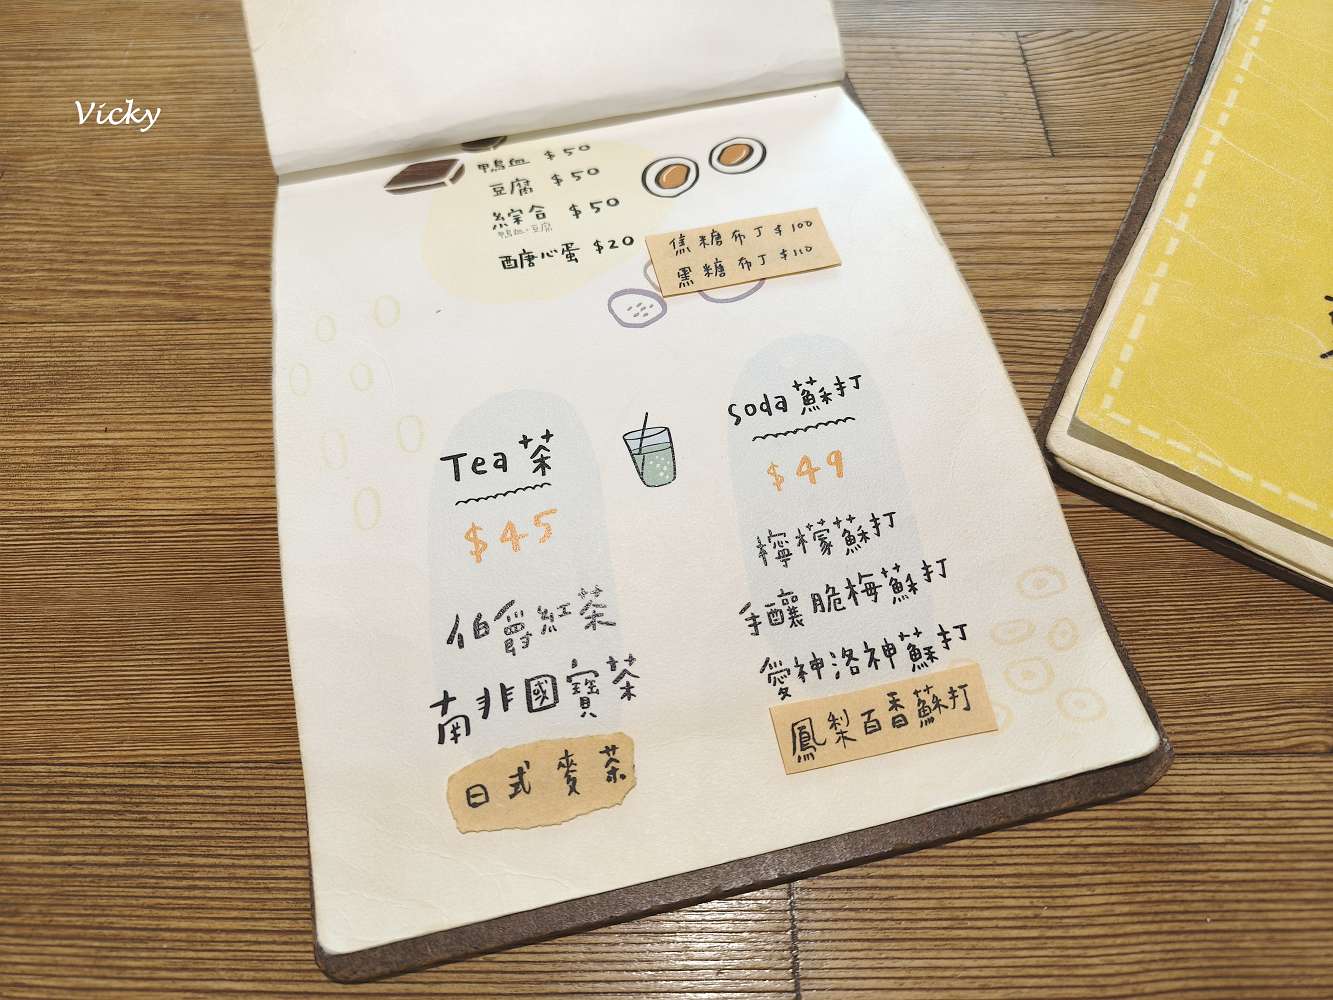 Vicky
鴨血 $50
豆腐 $50
綜合 $50
鴨血·豆腐
醣心蛋 $20
焦糖布丁 $100
黑糖布丁 $110
Tea 茶
$45
伯爵紅茶
南非國寶茶
日式麥茶
Soda 蘇打
$49
檸檬蘇打
手釀脆梅蘇打
愛神洛神蘇打
鳳梨百香蘇打